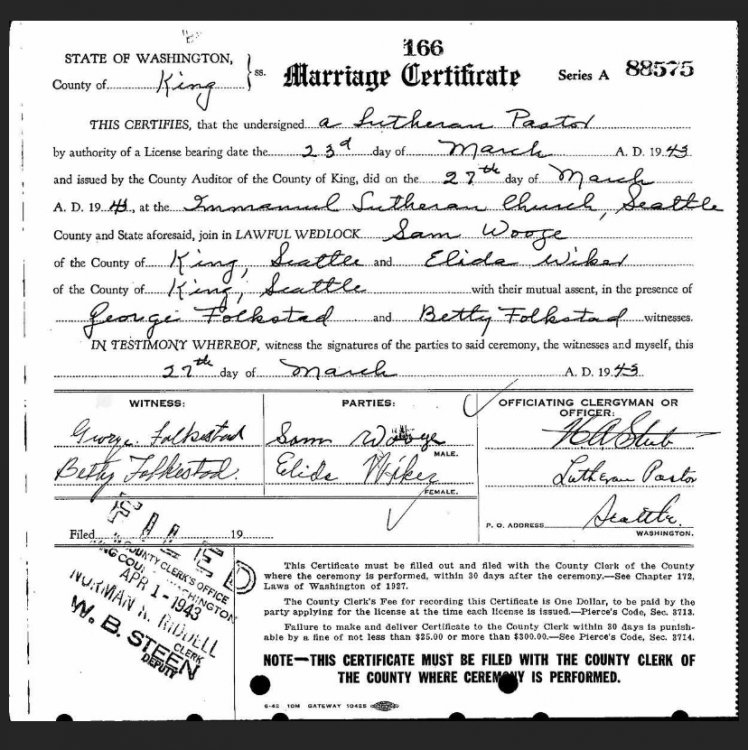 166
STATE OF WASHINGTON,
County of King } ss. Marriage Certificate Series A 88575
THIS CERTIFIES, that the undersigned a Lutheran Pastor
by authority of a License bearing date the 23d day of March A. D. 1943
and issued by the County Auditor of the County of King, did on the 27th day of March
A. D. 1943, at the Immanuel Lutheran Church, Seattle
County and State aforesaid, join in LAWFUL WEDLOCK Sam Wooge
of the County of King, Seattle and Elida Wiker
of the County of King, Seattle with their mutual assent, in the presence of
George Folkstad and Betty Folkstad witnesses.
IN TESTIMONY WHEREOF, witness the signatures of the parties to said ceremony, the witnesses and myself, this
27th day of March A. D. 1943
WITNESS: PARTIES: OFFICIATING CLERGYMAN OR
OFFICER:
George Folkestad Sam Wooge
MALE.
Betty Folkestad. Elida Wiker Lutheran Pastor
FEMALE.
P. O. ADDRESS Seattle.
WASHINGTON.
Filed 19
FILED
COUNTY CLERK'S OFFICE
KING COUNTY WASHINGTON
APR 1-1943
NORMAN R. RIDDELL
CLERK
W. B. STEEN
DEPUTY
This Certificate must be filled out and filed with the County Clerk of the County
where the ceremony is performed, within 30 days after the ceremony.—See Chapter 172,
Laws of Washington of 1927.
The County Clerk's Fee for recording this Certificate is One Dollar, to be paid by the
party applying for the license at the time each license is issued.—Pierce's Code, Sec. 3713.
Failure to make and deliver Certificate to the County Clerk within 30 days is punish-
able by a fine of not less than $25.00 or more than $300.00.—See Pierce's Code, Sec. 3714.
NOTE—THIS CERTIFICATE MUST BE FILED WITH THE COUNTY CLERK OF
THE COUNTY WHERE CEREMONY IS PERFORMED.
6-42 10M GATEWAY 10425